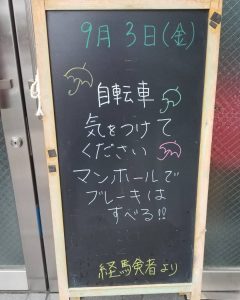 9月3日(金)
自転車
気をつけて
ください
マンホールで
ブレーキは
すべる!!
経馬険者より